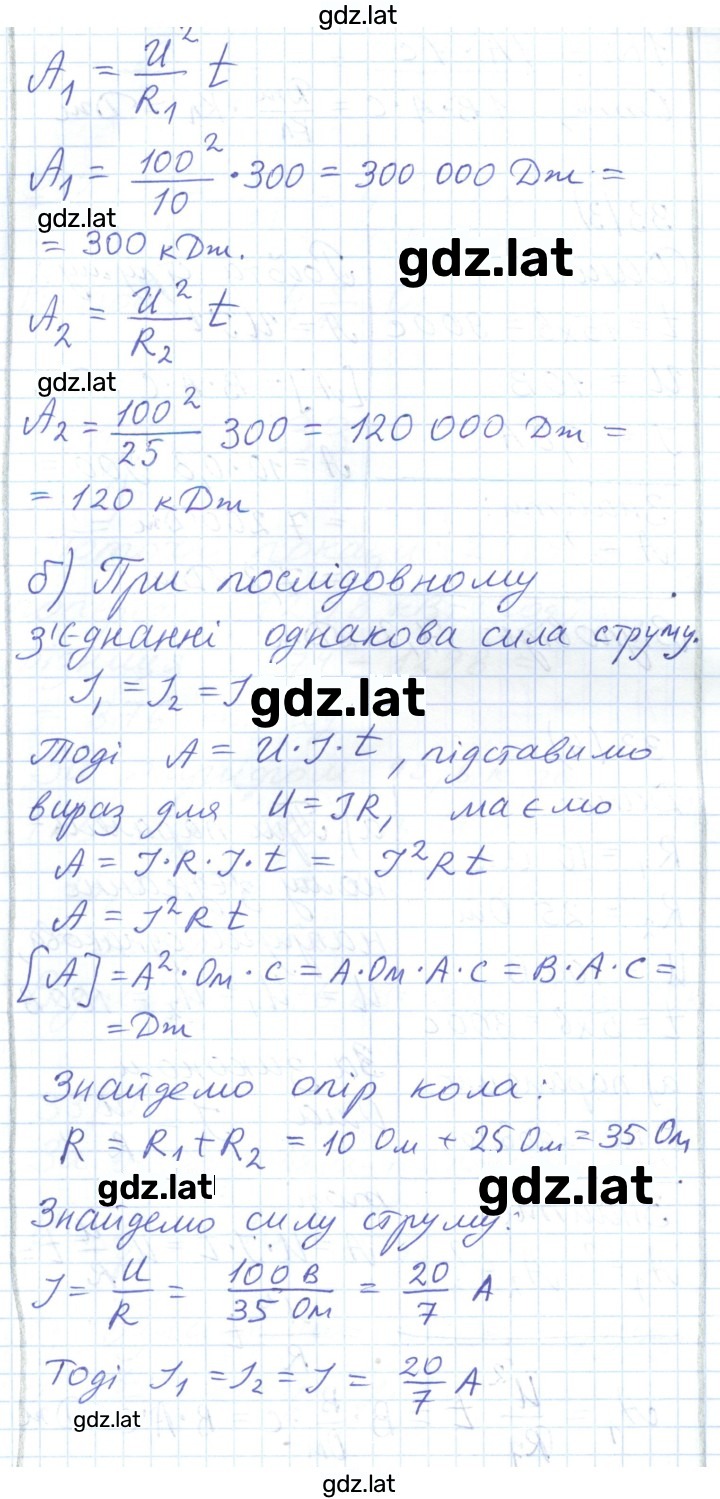 gdz.lat
A₁ = U²/R₁ t
A₁ = 100²/10 · 300 = 300 000 Дж =
gdz.lat
= 300 кДж.
gdz.lat
A₂ = U²/R₂ t
gdz.lat
A₂ = 100²/25 300 = 120 000 Дж =
= 120 кДж
б) При послідовному
з'єднанні однакова сила струму.
I₁ = I₂ = I
gdz.lat
Тоді A = U·I·t, підставимо
вираз для U = IR, маємо
A = I·R·I·t = I²Rt
A = I²Rt
[A] = A²·Ом·с = А·Ом·А·с = В·А·с =
= Дж
Знайдемо опір кола:
R = R₁ + R₂ = 10 Ом + 25 Ом = 35 Ом
gdz.lat
gdz.lat
Знайдемо силу струму:
I = U/R = 100 В/35 Ом = 20/7 А
Тоді I₁ = I₂ = I = 20/7 А
gdz.lat
gdz.lat